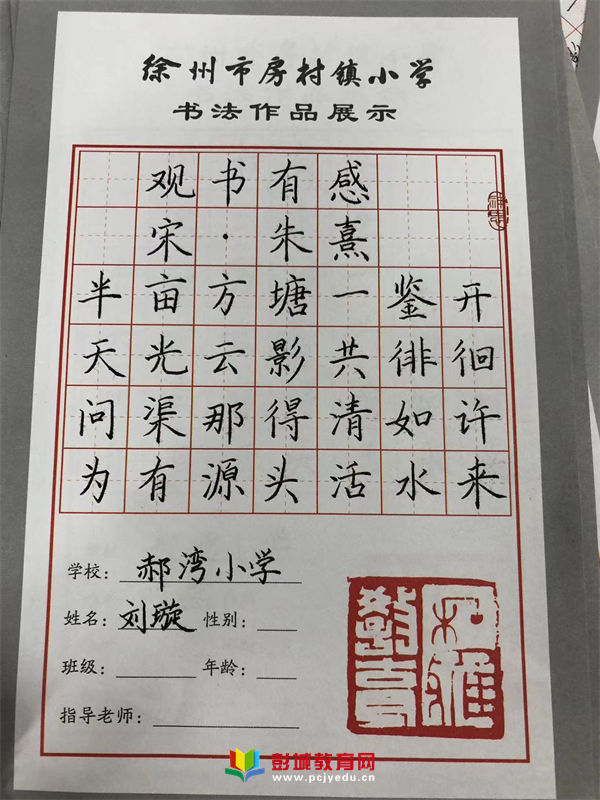 徐州市房村镇小学
书法作品展示
观书有感
宋·朱熹
半亩方塘一鉴开
天光云影共徘徊
问渠那得清如许
为有源头活水来
学校：郝湾小学
姓名：刘璇 性别：
班级： 年龄：
指导老师：
彭城教育网
www.pcjyedu.cn